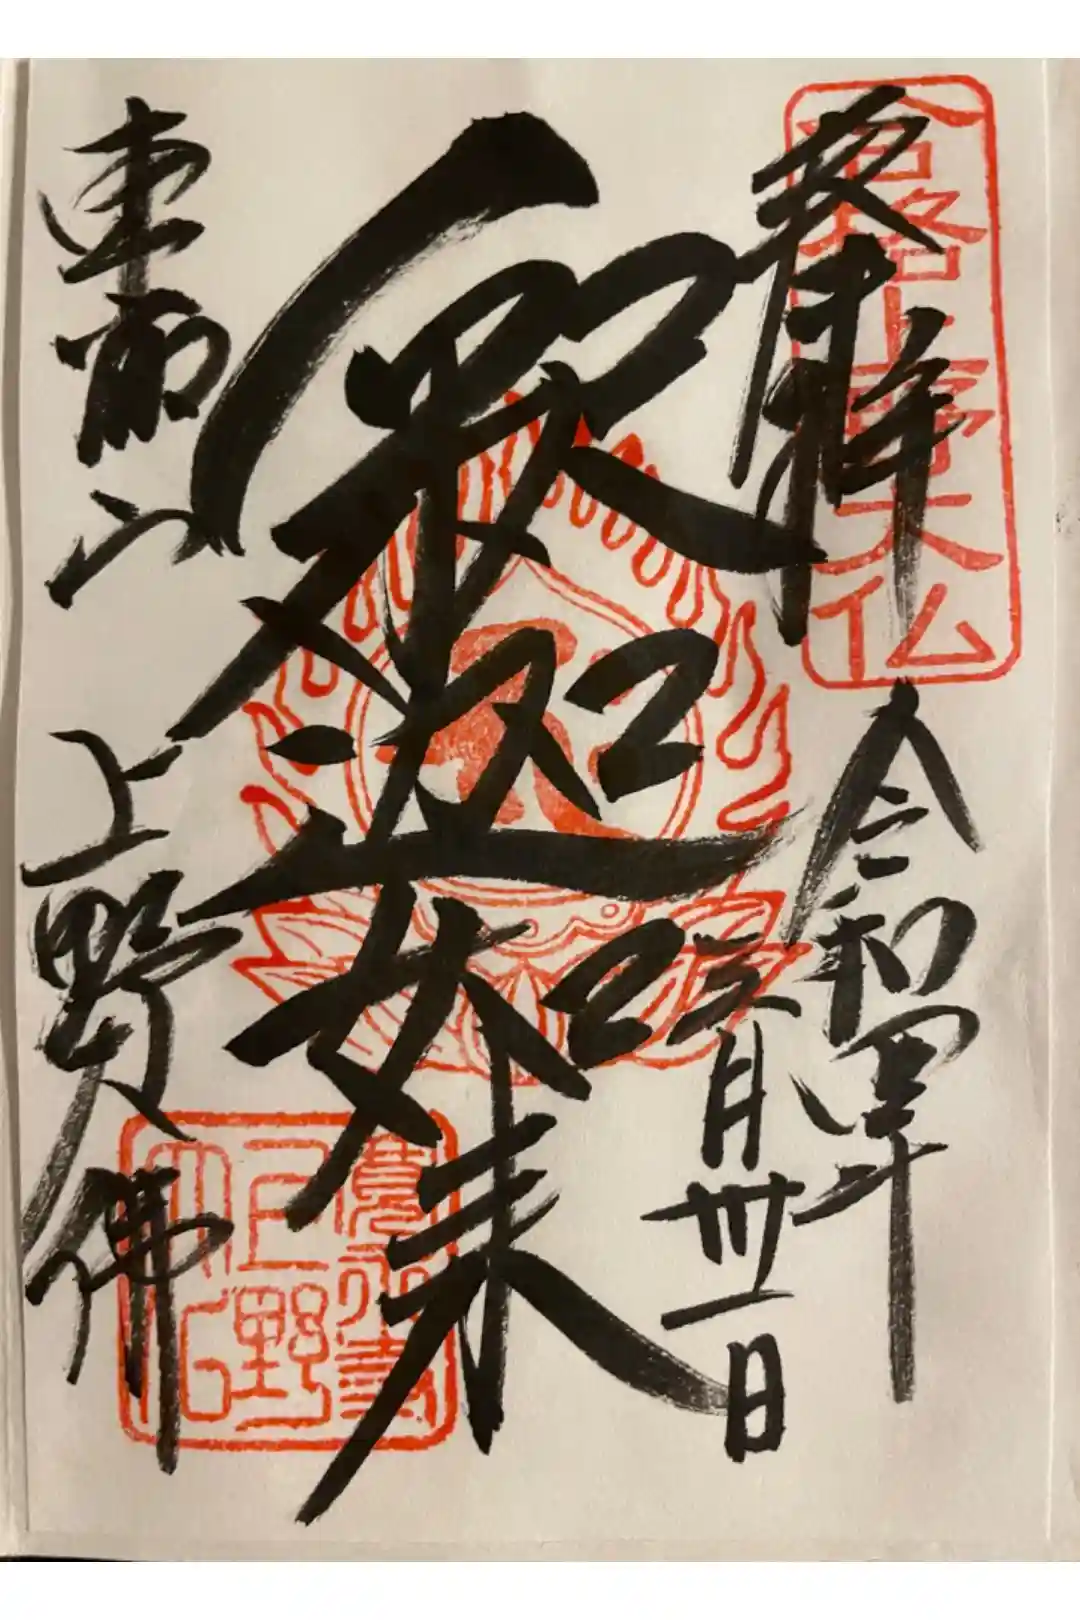 奉拝
合格上野大仏
令和四年
三月卅一日
釈迦如来
東叡山
上野大佛
寛永寺
上野
大仏